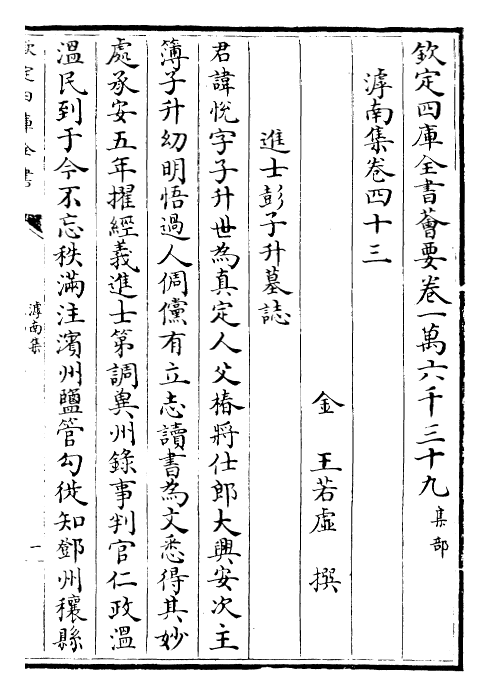 欽定四庫全書薈要卷一萬六千三十九 集部
滹南集卷四十三
金 王若虛 撰
進士彭子升墓誌
君諱悅字子升世為真定人父椿將仕郎大興安次主
簿子升幼明悟過人倜儻有立志讀書為文悉得其妙
處承安五年擢經義進士第調冀州錄事判官仁政溫
溫民到于今不忘秩滿注濱州鹽管勾從知鄧州穰縣
欽定四庫全書
滹南集
一